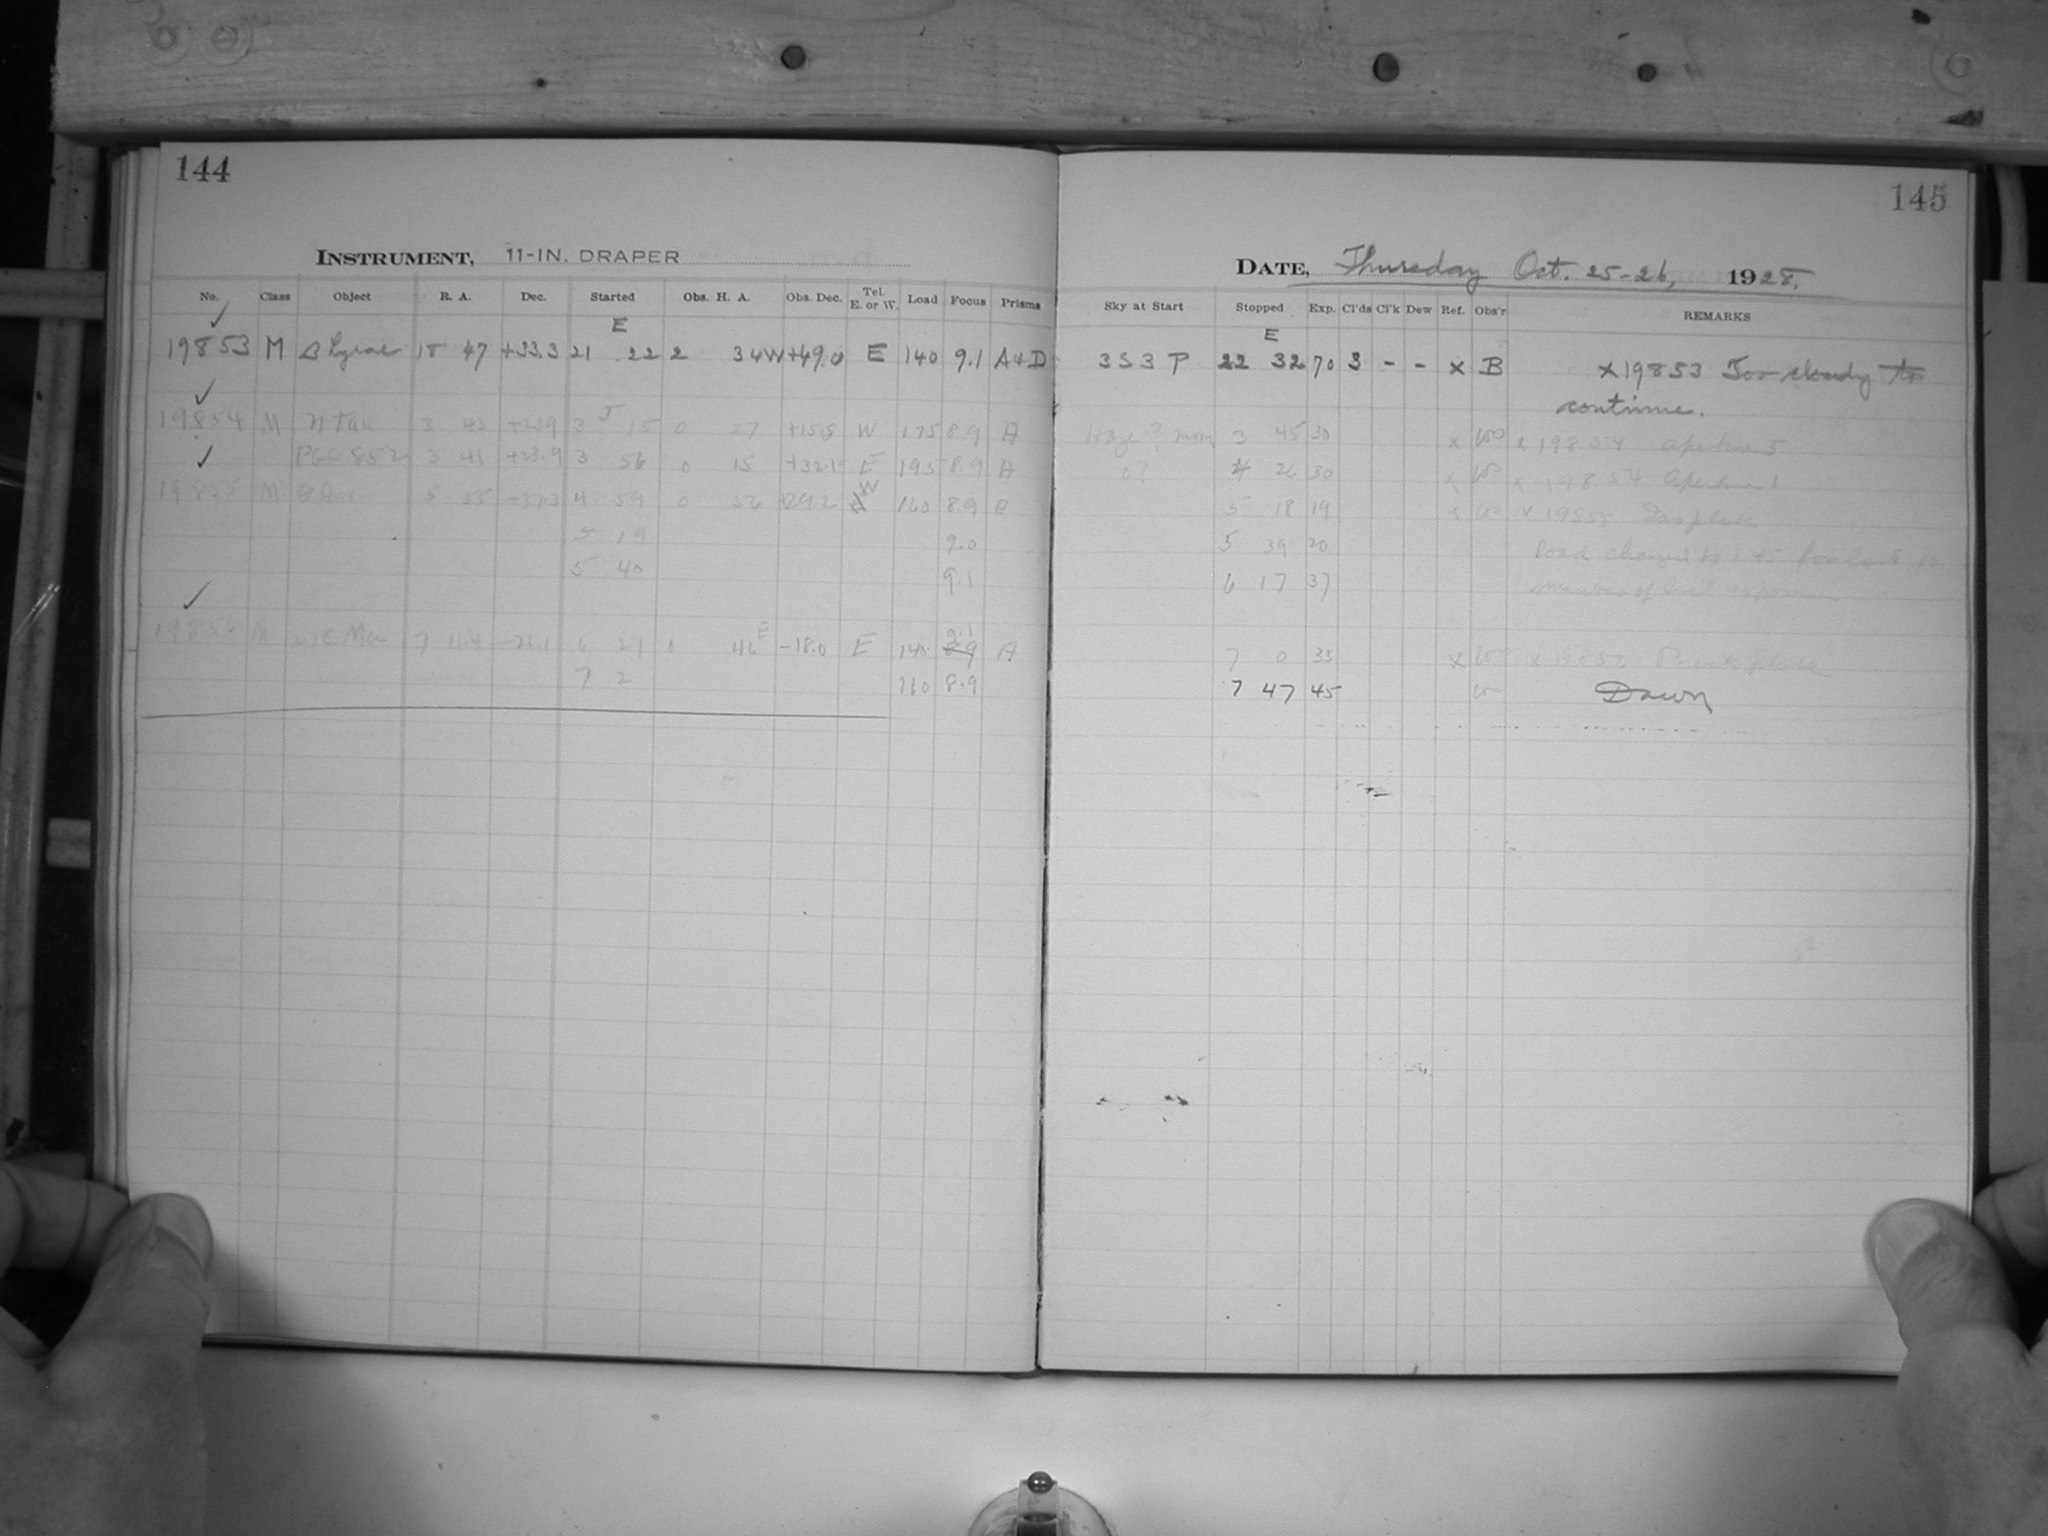 144
INSTRUMENT, 11-IN. DRAPER
No. Class Object R. A. Dec. Started Obs. H. A. Obs. Dec. Tel. E. or W. Load Focus Prisms
E
19853 M β Lyrae 18 47 +33.3 21 22 2 34W +49.0 E 140 9.1 A+D
19854 M η Tau 3 43 +23.9 3 15 0 27 +15.8 W 175 8.9 A
3 41 +23.9 3 56 0 15 E 195 8.9 A
19855 M 5 55 +37.3 4 59 0 56 W 160 8.9 A
5 19 9.0
5 40 9.1
19856 M 27 C Ma 7 -26.1 6 27 0 46 E -18.0 E 140 9.1 A
7 2 160 8.9
145
DATE, Thursday Oct. 25-26, 1928.
Sky at Start Stopped Exp. Cl'ds Cl'k Dew Ref. Obs'r REMARKS
E
3S3P 22 32 70 3 - - x B x 19853 Too cloudy to
continue.
Haze? moon 3 45 30 x x 19854
0? 4 26 30 x x 19854
5 18 19 x x 19855
5 39 20 Load changed to 145 for last 10
6 17 37 minutes of last exposure
7 0 33 x x 19856
7 47 45 Dawn